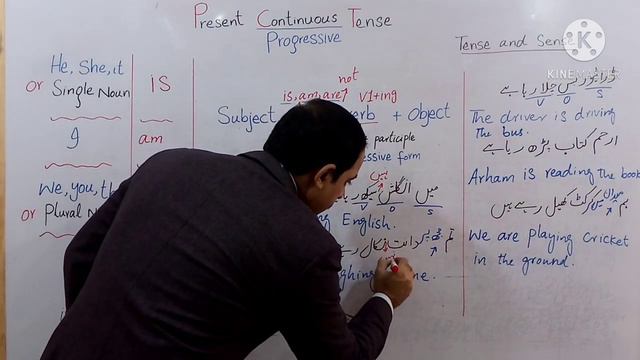 Present Continuous Tense
Progressive
Tense and Sense
KINEMASTER
He, She, it
OR Single Noun
is
I
am
We, you, th
OR Plural N
not
is, am, are V1+ing
Subject erb + Object
participle
ssive form
ہیں
میں انگلش سیکھ
V O S
ng English.
تم پر دانت نکال رہے
ghing me.
ڈرائیور بس چلا رہا ہے
V O S
The driver is driving
the bus.
ارحم کتاب پڑھ رہا ہے
Arham is reading the book
ہم میدان میں کرکٹ کھیل رہے ہیں
We are playing cricket
in the ground.